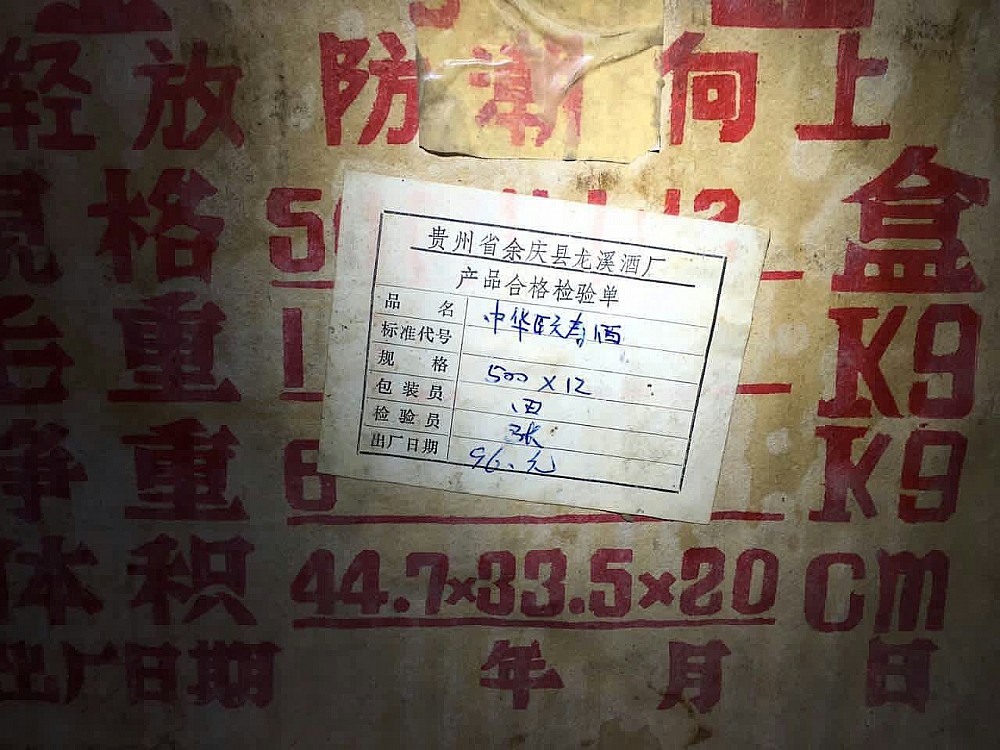 轻放防潮向上
规格 50 12 盒
毛重 1 K9
净重 6 K9
体积 44.7×33.5×20 Cm
出厂日期 年 月 日
贵州省余庆县龙溪酒厂
产品合格检验单
品名 中华颐寿酒
标准代号
规格 500×12
包装员 田
检验员 张
出厂日期 96.元